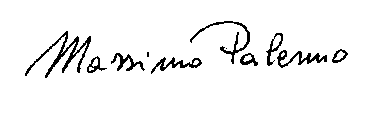 Massimo Palermo